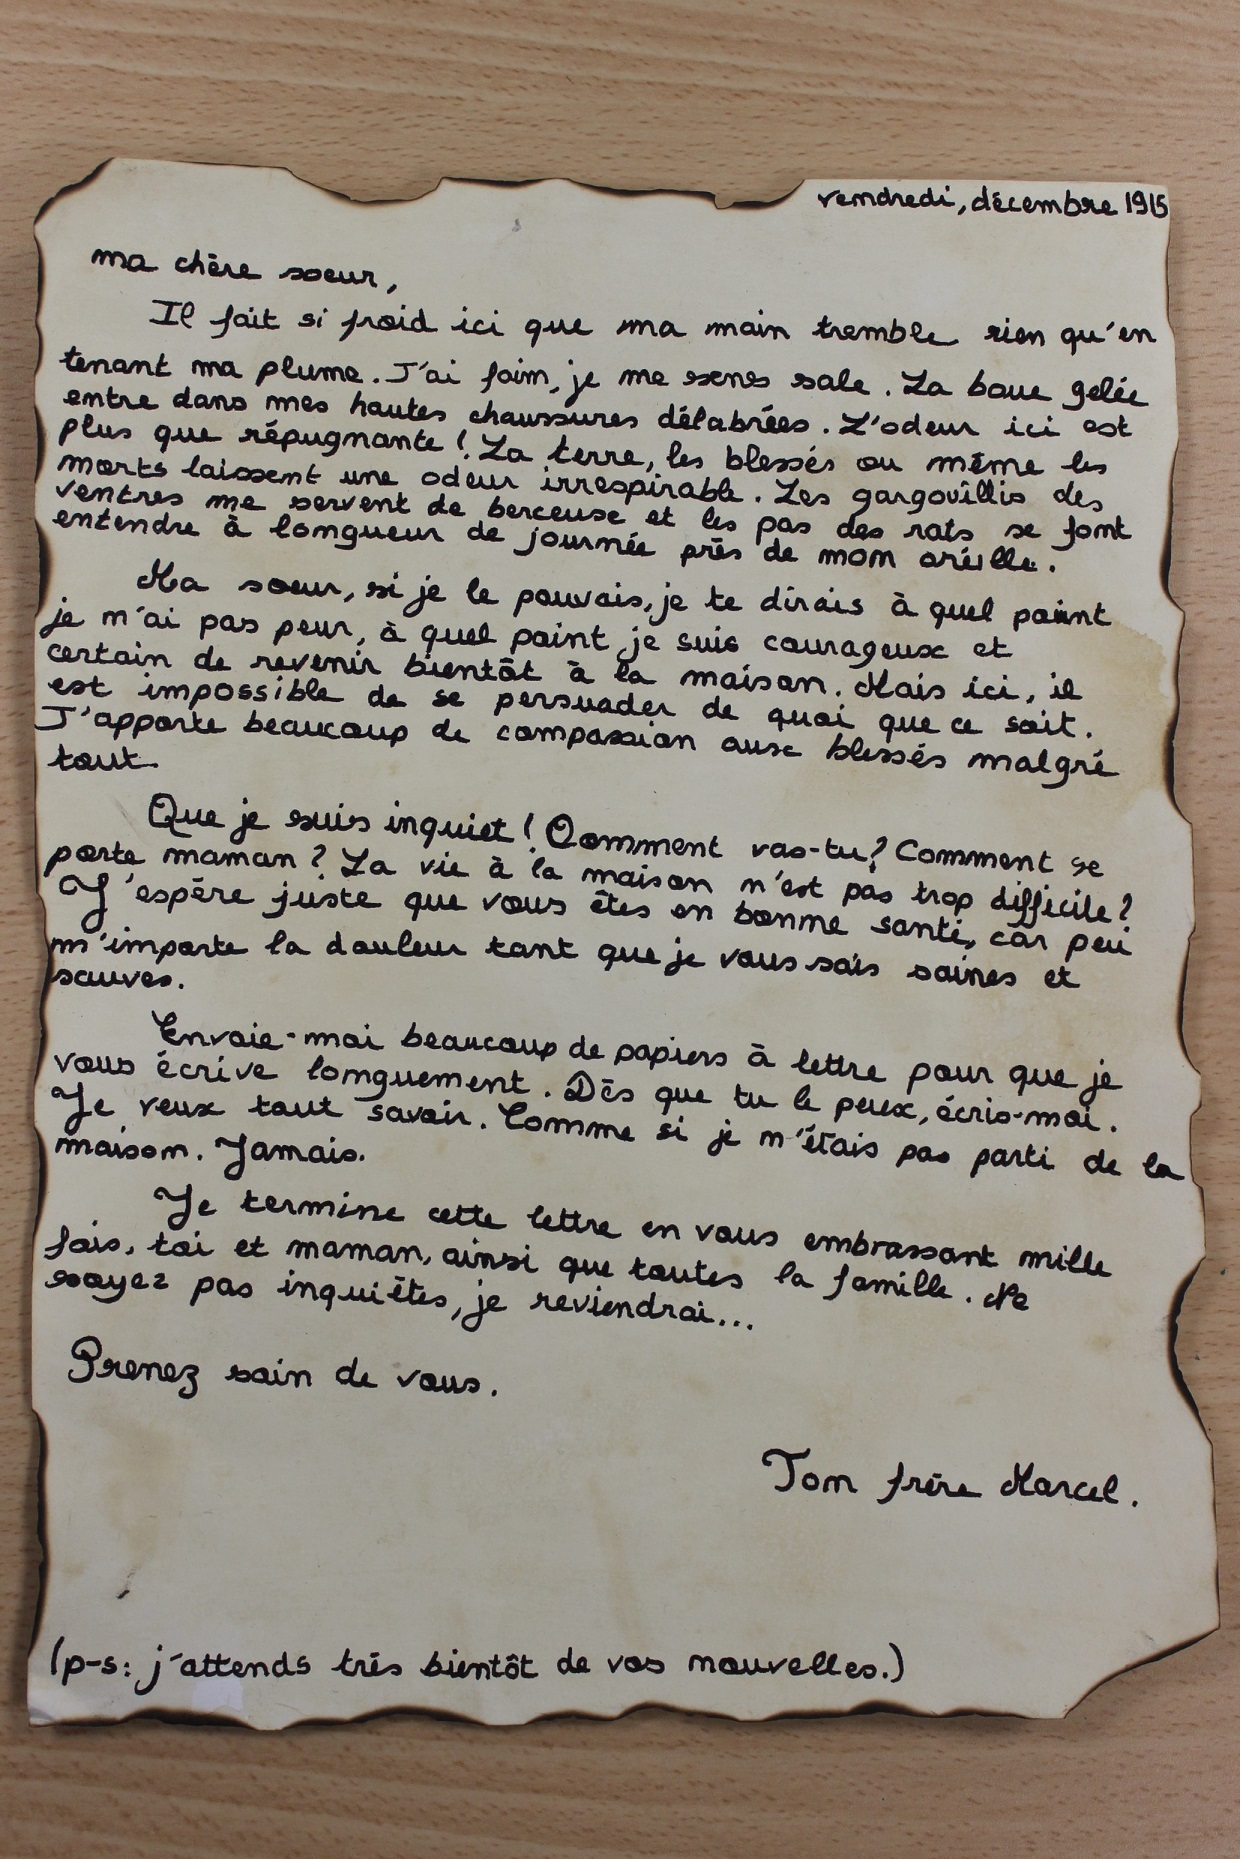 vendredi, décembre 1915
ma chère soeur,
Il fait si froid ici que ma main tremble rien qu'en
tenant ma plume. J'ai faim, je me sens sale. La boue gelée
entre dans mes hautes chaussures délabrées. L'odeur ici est
plus que répugnante ! La terre, les blessés ou même les
morts laissent une odeur irrespirable. Les gargouillis des
ventres me servent de berceuse et les pas des rats se font
entendre à longueur de journée près de mon oreille.
Ma soeur, si je le pouvais, je te dirais à quel point
je n'ai pas peur, à quel point je suis courageux et
certain de revenir bientôt à la maison. Mais ici, il
est impossible de se persuader de quoi que ce soit.
J'apporte beaucoup de compassion aux blessés malgré
tout.
Que je suis inquiet ! Comment vas-tu ? Comment se
porte maman ? La vie à la maison n'est pas trop difficile ?
J'espère juste que vous êtes en bonne santé, car peu
m'importe la douleur tant que je vous sais saines et
sauves.
Envoie-moi beaucoup de papiers à lettre pour que je
vous écrive longuement. Dès que tu le peux, écris-moi.
Je veux tout savoir. Comme si je n'étais pas parti de la
maison. Jamais.
Je termine cette lettre en vous embrassant mille
fois, toi et maman, ainsi que toutes la famille. Ne
soyez pas inquiètes, je reviendrai...
Prenez soin de vous.
Ton frère Marcel.
(p-s: j'attends très bientôt de vos nouvelles.)